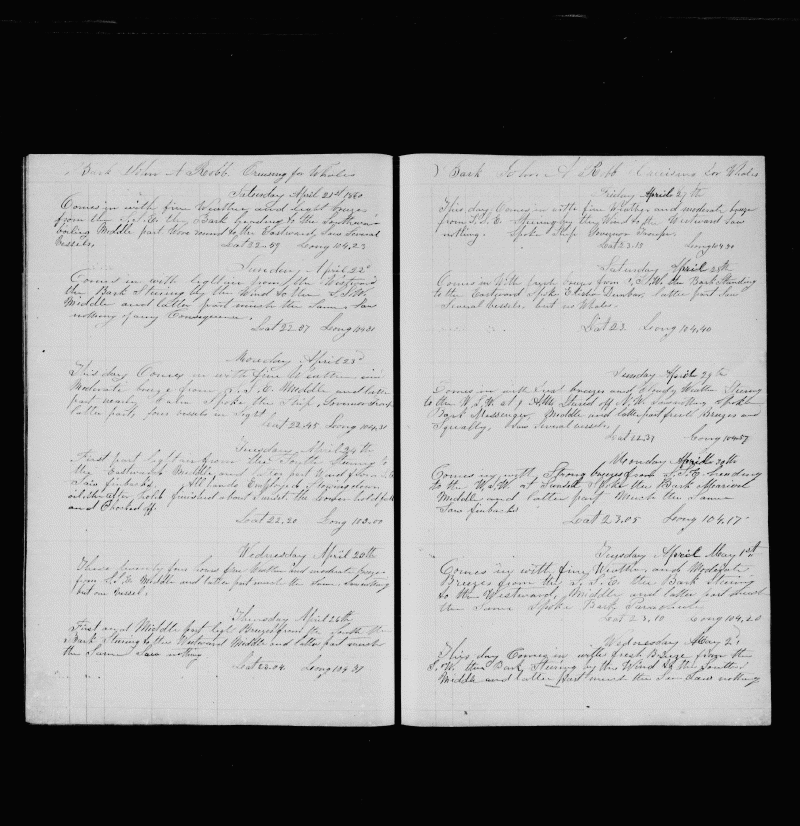 Bark John A Robb Cruising for Whales
Saturday April 21st 1860
Comes in with fine Weather and light breezes
from the S.E. the Bark heading to the Southward
Middle part Wore round to the Eastward, Saw Several
Vessels. Lat 22.49 Long 104.23
Sunday April 22d
Comes in with light from the Westward
the Bark Steering by the Wind to the S.S.W.
Middle and latter part much the Same. Saw
nothing of any Consequence.
Lat 22.37 Long 104.30
Monday April 23d
This day Comes in with fine Weather and
Moderate breeze from S.S.E. Middle and latter
part nearly Calm Spoke the Ship Governor Troup
latter part four vessels in Sight
Lat 22.45 Long 104.31
Tuesday April 24th
First part light air from the South Steering to
the Eastward Middle and latter part Wind from
Saw finbacks. All hands Employed Stowing down
oil in the after hold finished about Sunset the
and Broched off.
Lat 22.20 Long 103.00
Wednesday April 25th
These twenty four hours fine Weather and moderate breeze
from S.S.E. Middle and latter part much the Same, Saw nothing
but one vessel.
Thursday April 26th
First and Middle part light Breeze from the South the
Bark Steering to the Westward Middle and latter part much
the Same Saw nothing
Lat 23.04 Long 104.31
Bark John A Robb Cruising for Whales
Friday April 27th
This day Comes in with fine Weather and moderate breeze
from S.S.E. Steering by the Wind to the Westward Saw
nothing. Spoke Ship Governor Troup.
Lat 23.13 Long 104.30
Saturday April 28th
Comes in With fresh breeze from S.S.W. the Bark Standing
to the Eastward Spoke Elisha Dunbar. latter part Saw
Several vessels. but no Whales.
Lat 23. Long 104.40
Sunday April 29th
Comes in with light breezes and Cloudy Weather Steering
to the W.S.W. at 9 AM Shifted off N.W. Saw nothing Spoke
Bark Messenger, Middle and latter part fresh Breezes and
Squally. Saw several vessels.
Lat 22.37 Long 104.37
Monday April 30th
Comes in with Strong breezes from S.S.E. heading
to the W.S.W. at Sunset Spoke the Bark
Middle and latter part Much the Same
Saw finbacks
Lat 23.05 Long 104.17
Tuesday April May 1st
Comes in with fine Weather and Moderate
Breezes from the S.S.E. the Bark Steering
to the Westward, Middle and latter part much
the Same Spoke Bark
Lat 23.10 Long 104.20
Wednesday May 2d
This day Comes in with fresh Breeze from the
S.W. the Bark Steering by the Wind to the South
Middle and latter part much the Same Saw nothing